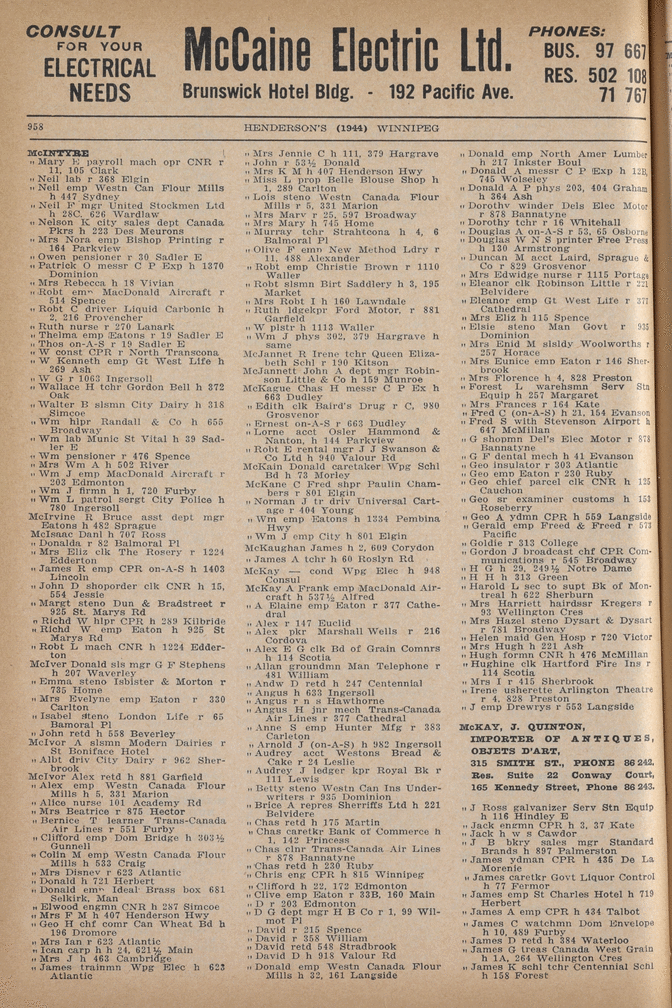 CONSULT
FOR YOUR
ELECTRICAL
NEEDS
McCaine Electric Ltd.
Brunswick Hotel Bldg. - 192 Pacific Ave.
PHONES:
BUS. 97 667
RES. 502 108
71 767
958
HENDERSON'S (1944) WINNIPEG
McINTYRE
„ Mary E payroll mach opr CNR r
11, 105 Clark
„ Neil lab r 368 Elgin
„ Neil emp Westn Can Flour Mills
h 447 Sydney
„ Neil F mgr United Stockmen Ltd
h 28C, 626 Wardlaw
„ Nelson K city sales dept Canada
Pkrs h 223 Des Meurons
„ Mrs Nora emp Bishop Printing r
164 Parkview
„ Owen pensioner r 30 Sadler E
„ Patrick O messr C P Exp h 1370
Dominion
„ Mrs Rebecca h 18 Vivian
„ Robt emp MacDonald Aircraft r
514 Spence
„ Robt C driver Liquid Carbonic h
2, 216 Provencher
„ Ruth nurse r 270 Lanark
„ Thelma emp Eatons r 19 Sadler E
„ Thos on-A-S r 19 Sadler E
„ W const CPR r North Transcona
„ W Kenneth emp Gt West Life h
269 Ash
„ W G r 1063 Ingersoll
„ Wallace H tchr Gordon Bell h 372
Oak
„ Walter B slsmn City Dairy h 318
Simcoe
„ Wm hlpr Randall & Co h 655
Broadway
„ Wm lab Munic St Vital h 39 Sad-
ler E
„ Wm pensioner r 476 Spence
„ Mrs Wm A h 502 River
„ Wm J emp MacDonald Aircraft r
203 Edmonton
„ Wm J firmn h 1, 720 Furby
„ Wm L patrol sergt City Police h
780 Ingersoll
McIrvine R Bruce asst dept mgr
Eatons h 482 Sprague
McIsaac Danl h 707 Ross
„ Donalda r 82 Balmoral Pl
„ Mrs Eliz clk The Rosery r 1224
Edderton
„ James R emp CPR on-A-S h 1403
Lincoln
„ John D shoporder clk CNR h 15,
554 Jessie
„ Margt steno Dun & Bradstreet r
925 St. Marys Rd
„ Richd W hlpr CPR h 289 Kilbride
„ Richd W emp Eaton h 925 St
Marys Rd
„ Robt L mach CNR h 1224 Edder-
ton
McIver Donald sls mgr G F Stephens
h 207 Waverley
„ Emma steno Isbister & Morton r
735 Home
„ Mrs Evelyne emp Eaton r 330
Carlton
„ Isabel steno London Life r 65
Bamoral Pl
„ John retd h 558 Beverley
McIvor A slsmn Modern Dairies r
St Boniface Hotel
„ Albt driv City Dairy r 962 Sher-
brook
McIvor Alex retd h 881 Garfield
„ Alex emp Westn Canada Flour
Mills h 5, 331 Marion
„ Alice nurse 101 Academy Rd
„ Mrs Beatrice r 875 Hector
„ Bernice T learner Trans-Canada
Air Lines r 551 Furby
„ Clifford emp Dom Bridge h 303½
Gunnell
„ Colin M emp Westn Canada Flour
Mills h 533 Craig
„ Mrs Disney r 623 Atlantic
„ Donald h 721 Herbert
„ Donald emp Ideal Brass box 681
Selkirk, Man
„ Elwood engmn CNR h 287 Simcoe
„ Mrs F M h 407 Henderson Hwy
„ Geo H chf comr Can Wheat Bd h
196 Dromore
„ Mrs Ian r 623 Atlantic
„ Ican carp h h 24, 621½ Main
„ Mrs J h 463 Cambridge
„ James trainmn Wpg Elec h 623
Atlantic
„ Mrs Jennie C h 111, 379 Hargrave
„ John r 53½ Donald
„ Mrs K M h 407 Henderson Hwy
„ Miss L prop Belle Blouse Shop h
1, 289 Carlton
„ Lois steno Westn Canada Flour
Mills r 5, 331 Marion
„ Mrs Mary r 25, 597 Broadway
„ Mrs Mary h 745 Home
„ Murray tchr Strahtcona h 4, 6
Balmoral Pl
„ Olive F emp New Method Ldry r
11, 488 Alexander
„ Robt emp Christie Brown r 1110
Waller
„ Robt slsmn Birt Saddlery h 3, 195
Market
„ Mrs Robt I h 160 Lawndale
„ Ruth ldgekpr Ford Motor, r 881
Garfield
„ W plstr h 1113 Waller
„ Wm J phys 302, 379 Hargrave h
same
McJannet R Irene tchr Queen Eliza-
beth Schl r 190 Kitson
McJannett John A dept mgr Robin-
son Little & Co h 159 Munroe
McKague Chas H messr C P Ex h
663 Dudley
„ Edith clk Baird's Drug r C, 980
Grosvenor
„ Ernest on-A-S r 663 Dudley
„ Lorne acct Osler Hammond &
Nanton, h 144 Parkview
„ Robt E rental mgr J J Swanson &
Co Ltd h 940 Valour Rd
McKain Donald caretaker Wpg Schl
Bd h 73 Morley
McKane C Fred shpr Paulin Cham-
bers r 801 Elgin
„ Norman J tr driv Universal Cart-
age r 404 Young
„ Wm emp Eatons h 1334 Pembina
Hwy
„ Wm J emp City h 801 Elgin
McKaughan James h 2, 609 Corydon
„ James A tchr h 60 Roslyn Rd
McKay — cond Wpg Elec h 948
Consul
McKay A Frank emp MacDonald Air-
craft h 537½ Alfred
„ A Elaine emp Eaton r 377 Cathe-
dral
„ Alex r 147 Euclid
„ Alex pkr Marshall Wells r 216
Cordova
„ Alex E G clk Bd of Grain Comnrs
h 114 Scotia
„ Allan groundmn Man Telephone r
481 William
„ Andw D retd h 247 Centennial
„ Angus h 633 Ingersoll
„ Angus r n s Hawthorne
„ Angus H jnr mech Trans-Canada
Air Lines r 377 Cathedral
„ Anne S emp Hunter Mfg r 383
Carleton
„ Arnold J (on-A-S) h 982 Ingersoll
„ Audrey acct Westons Bread &
Cake r 24 Leslie
„ Audrey J ledger kpr Royal Bk r
111 Lewis
„ Betty steno Westn Can Ins Under-
writers r 935 Dominion
„ Brice A repres Sherriffs Ltd h 221
Belvidere
„ Chas retd h 175 Martin
„ Chas caretkr Bank of Commerce h
1, 142 Princess
„ Chas clnr Trans-Canada Air Lines
r 878 Bannatyne
„ Chas retd h 230 Ruby
„ Chris eng CPR h 815 Winnipeg
„ Clifford h 22, 172 Edmonton
„ Clive emp Eaton r 33B, 160 Main
„ D r 203 Edmonton
„ D G dept mgr H B Co r 1, 99 Wil-
mot Pl
„ David r 215 Spence
„ David r 358 William
„ David retd 548 Stradbrook
„ David D h 918 Valour Rd
„ Donald emp Westn Canada Flour
Mills h 32, 161 Langside
„ Donald emp North Amer Lumber
h 217 Inkster Boul
„ Donald A messr C P Exp h 12B,
745 Wolseley
„ Donald A P phys 203, 404 Graham
h 364 Ash
„ Dorothy winder Dels Elec Motor
r 878 Bannatyne
„ Dorothy tchr r 16 Whitehall
„ Douglas A on-A-S r 53, 65 Osborne
„ Douglas W N S printer Free Press
h 130 Armstrong
„ Duncan M acct Laird, Sprague &
Co r 829 Grosvenor
„ Mrs Edwidge nurse r 1115 Portage
„ Eleanor clk Robinson Little r 221
Belvidere
„ Eleanor emp Gt West Life r 377
Cathedral
„ Mrs Eliz h 115 Spence
„ Elsie steno Man Govt r 935
Dominion
„ Mrs Enid M slsldy Woolworths r
257 Horace
„ Mrs Eunice emp Eaton r 146 Sher-
brook
„ Mrs Florence h 4, 828 Preston
„ Forest L warehsmn Serv Stn
Equip h 257 Margaret
„ Mrs Frances r 164 Kate
„ Fred C (on-A-S) h 21, 154 Evanson
„ Fred S with Stevenson Airport h
647 McMillan
„ G shopmn Del's Elec Motor r 878
Bannatyne
„ G F dental mech h 41 Evanson
„ Geo insulator r 303 Atlantic
„ Geo emp Eaton r 230 Ruby
„ Geo chief parcel clk CNR h 125
Cauchon
„ Geo sr examiner customs h 153
Roseberry
„ Geo A ydmn CPR h 559 Langside
„ Gerald emp Freed & Freed r 573
Pacific
„ Goldie r 313 College
„ Gordon J broadcast chf CPR Com-
munications r 545 Broadway
„ H G h 29, 249½ Notre Dame
„ H H h 313 Green
„ Harold L sec to supt Bk of Mon-
treal h 622 Sherburn
„ Mrs Harriett hairdssr Kregers r
93 Wellington Cres
„ Mrs Hazel steno Dysart & Dysart
r 781 Broadway
„ Helen maid Gen Hosp r 720 Victor
„ Mrs Hugh h 221 Ash
„ Hugh formn CNR h 476 McMillan
„ Hughine clk Hartford Fire Ins r
114 Scotia
„ Mrs I r 415 Sherbrook
„ Irene usherette Arlington Theatre
r 4, 828 Preston
„ J emp Drewrys r 553 Langside
McKAY, J. QUINTON,
IMPORTER OF ANTIQUES,
OBJETS D'ART,
315 SMITH ST., PHONE 86 242,
Res. Suite 22 Conway Court,
165 Kennedy Street, Phone 86 243.
„ J Ross galvanizer Serv Stn Equip
h 116 Hindley E
„ Jack engmn CPR h 3, 37 Kate
„ Jack h w s Cawdor
„ J B bkry sales mgr Standard
Brands h 897 Palmerston
„ James ydman CPR h 435 De La
Morenie
„ James caretkr Govt Liquor Control
h 77 Fermor
„ James emp St Charles Hotel h 719
Herbert
„ James A emp CPR h 434 Talbot
„ James C watchmn Dom Envelope
h 10, 489 Furby
„ James D retd h 384 Waterloo
„ James G treas Canada West Grain
h 1A, 264 Wellington Cres
„ James K schl tchr Centennial Schl
h 158 Forest